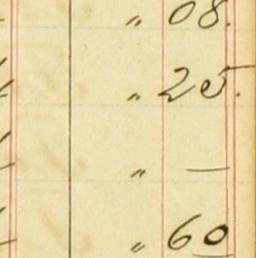 〃 08.
〃 25.
〃 —
〃 60